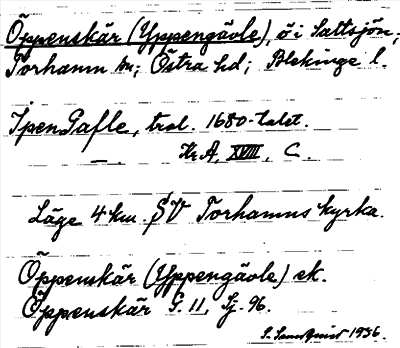 Öppenskär (Yppengävle), ö i Saltsjön;
Torhamn sn; Östra hd; Blekinge l.
Ipen Gafle, trol. 1680-talet.
— . Kr A, XVIII, C.
Läge 4 km. SV Torhamns kyrka.
Öppenskär (Yppengävle) ek.
Öppenskär G. 11, Sj. 96.
1936